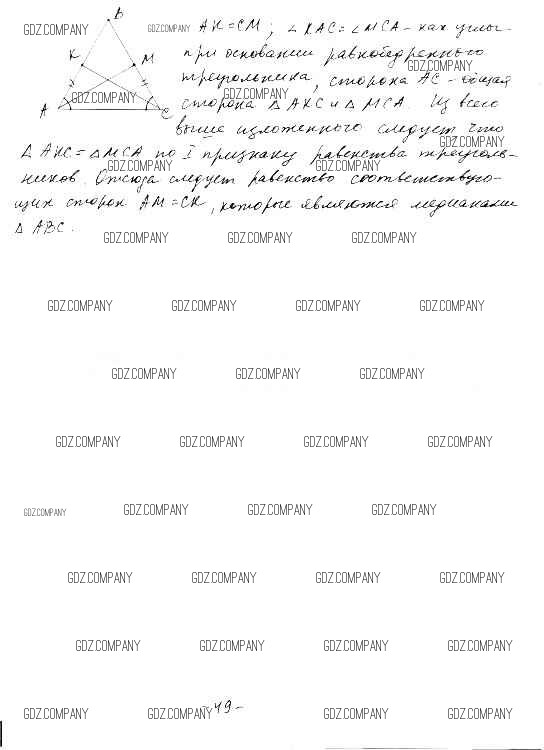 B
GDZ.COMPANY GDZ.COMPANY AK = CM ; ∠KAC = ∠MCA - как углы
K M при основании равнобедренного
GDZ.COMPANY
треугольника, сторона AC - общая
GDZ.COMPANY GDZ.COMPANY
A C сторона △ AKC и △ MCA. Из всего
выше изложенного следует что
GDZ.COMPANY
△ AKC = △ MCA по I признаку равенства треуголь-
GDZ.COMPANY GDZ.COMPANY
ников. Отсюда следует равенство соответствую-
щих сторон AM = CK, которые являются медианами
△ ABC.
GDZ.COMPANY GDZ.COMPANY GDZ.COMPANY
GDZ.COMPANY GDZ.COMPANY GDZ.COMPANY GDZ.COMPANY
GDZ.COMPANY GDZ.COMPANY GDZ.COMPANY
GDZ.COMPANY GDZ.COMPANY GDZ.COMPANY GDZ.COMPANY
GDZ.COMPANY GDZ.COMPANY GDZ.COMPANY GDZ.COMPANY
GDZ.COMPANY GDZ.COMPANY GDZ.COMPANY GDZ.COMPANY
GDZ.COMPANY GDZ.COMPANY GDZ.COMPANY GDZ.COMPANY
GDZ.COMPANY GDZ.COMPANY -49- GDZ.COMPANY GDZ.COMPANY